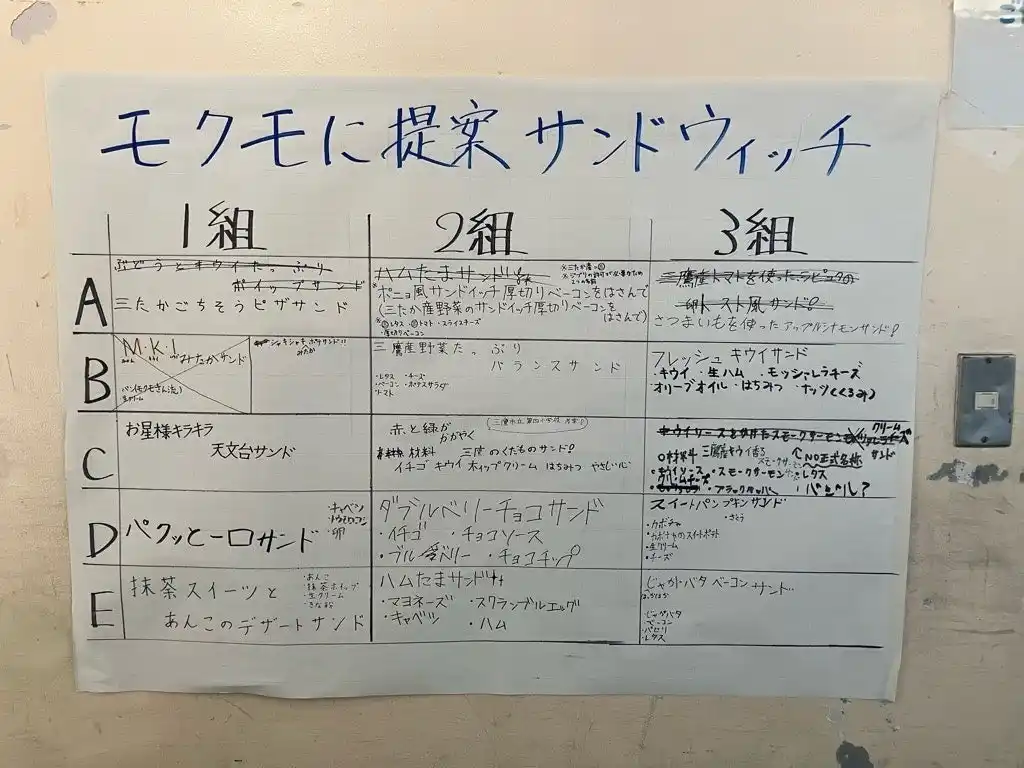 モクモに提案サンドウィッチ
1組
2組
3組
A
ぶどうとキウイたっぷり
ホイップサンド
三たかごちそうピザサンド
ハムたまサンド
※三たか産→
ポニョ風サンドイッチ厚切りベーコンをはさんで
(三たか産野菜のサンドイッチ厚切りベーコンを
はさんで)
レタス・トマト・スライスチーズ
・厚切りベーコン
三鷹産トマトを使ったラピュタの
卵トースト風サンド!
さつまいもを使ったアップルシナモンサンド!
B
M.K.I.
みたかサンド
パン(モクモさん流)
生クリーム
シャキシャキポテサンド!!
みたか
三鷹産野菜たっぷり
バランスサンド
・レタス・チーズ
・ベーコン・ポテトサラダ
・トマト
フレッシュキウイサンド
・キウイ・生ハム・モッツァレラチーズ
・オリーブオイル・はちみつ・ナッツ(くるみ)
C
お星様キラキラ
天文台サンド
赤と緑が
かがやく
(三鷹市立第四小学校
材料
三度のくだものサンド!
イチゴ キウイ ホイップクリーム はちみつ やさしい心
キウイソースをかけたスモークサーモン
クリーム
チーズ
サンド
○材料
三鷹産キウイ香る
スモークサーモン
NO正式名称
・キウイソース・スモークサーモン・レタス
・クリームチーズ
・ブラックペッパー
・バジル?
D
パクッと一口サンド
・キャベツ
・卵
ダブルベリーチョコサンド
・イチゴ ・チョコソース
・ブルーベリー ・チョコチップ
スイートパンプキンサンド
・さとう
・カボチャ
・カボチャのスイートポテト
・生クリーム
・チーズ
E
抹茶スイーツと
あんこのデザートサンド
・あんこ
・抹茶ホイップ
・生クリーム
・きな粉
ハムたまサンド
・マヨネーズ ・スクランブルエッグ
・キャベツ ・ハム
じゃがバタベーコンサンド
・じゃがバタ
・ベーコン
・パセリ
・レタス